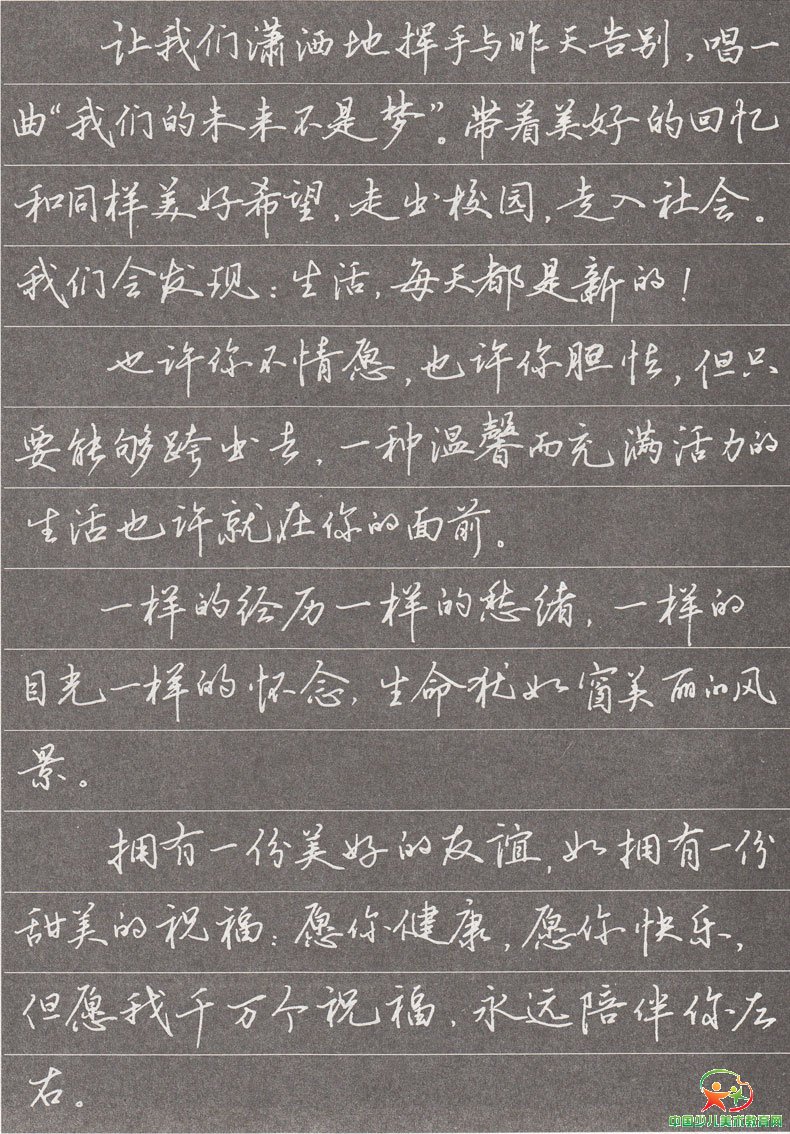 让我们潇洒地挥手与昨天告别,唱一
曲“我们的未来不是梦”。带着美好的回忆
和同样美好希望,走出校园,走入社会。
我们会发现:生活,每天都是新的!
也许你不情愿,也许你胆怯,但只
要能够跨出去,一种温馨而充满活力的
生活也许就在你的面前。
一样的经历一样的愁绪,一样的
目光一样的怀念,生命犹如窗美丽的风
景。
拥有一份美好的友谊,如拥有一份
甜美的祝福:愿你健康,愿你快乐,
但愿我千万个祝福,永远陪伴你左
右。
中国少儿美术教育网